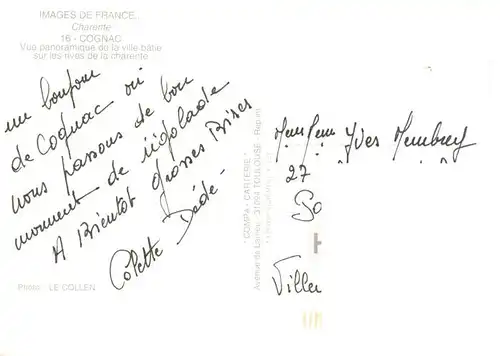 IMAGES DE FRANCE.
Charente
16 - COGNAC
Vue panoramique de la ville bâtie
sur les rives de la charente
un bonjour
de Cognac où
nous passons de bon
moment de rigolade
A Bientôt Grosses Bises
Colette Dédé -
Photo : LE COLLEN
"COMPA - CARTERIE"
31094 TOULOUSE
Yves
27
Viller